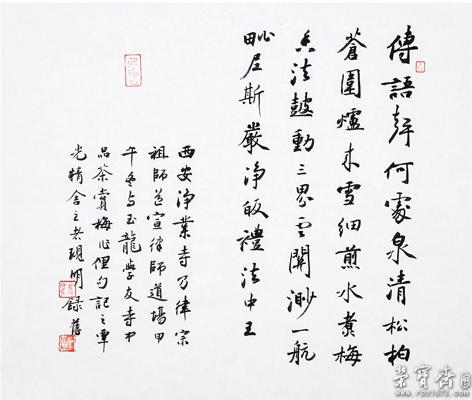 傳語何處泉清松柏
蒼圍爐來雪細煎水煮梅
香法鼓動三界雲開渺一航
毗尼斯嚴淨皈禮法中王
西安淨業寺乃律宗
祖師道宣律師道場甲
午冬与玉龍學友寺中
品茶賞梅作俚句記之
光精舍明錄舊
榮寶齋
www.rbz1672.com